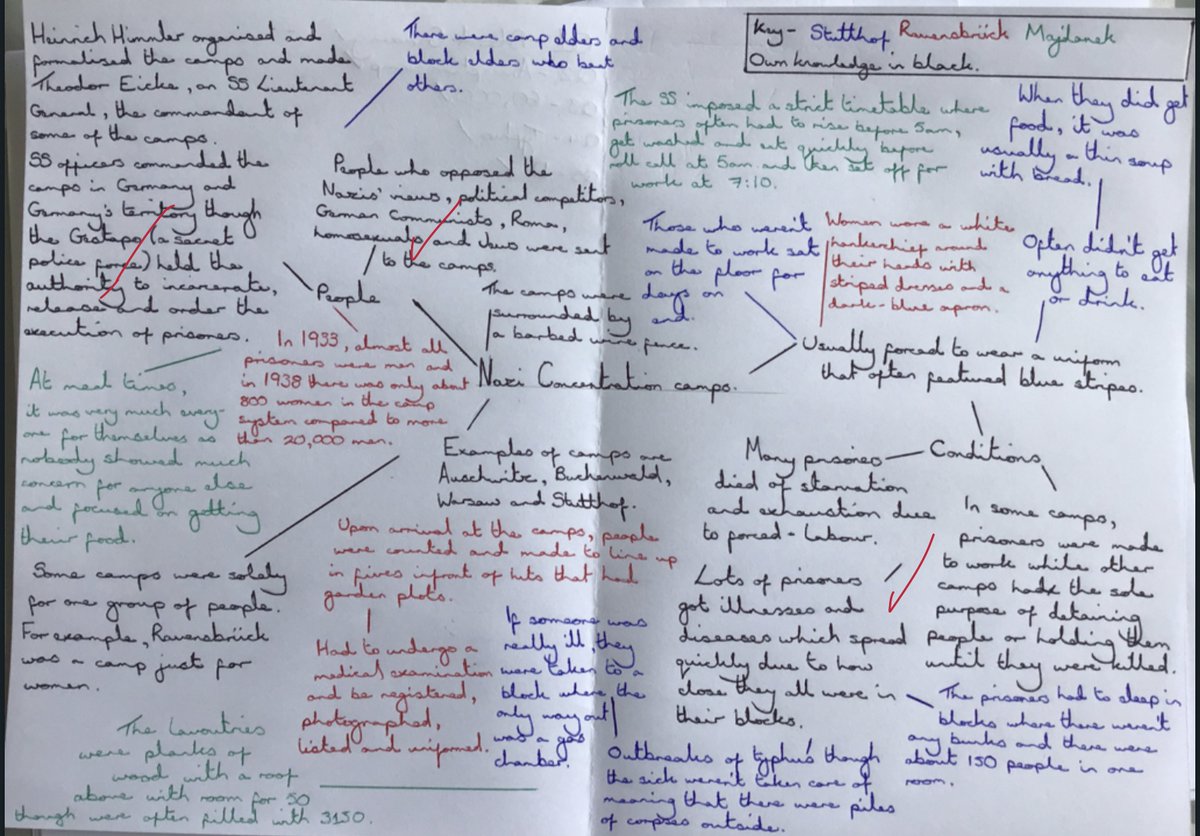 Heinrich Himmler organised and
formalised the camps and made
Theodor Eicke, an SS Lieutenant
General, the commandant of
some of the camps.
SS officers commanded the
camps in Germany and
Germany's territory though
the Gestapo (a secret
police force) held the
authority to incarcerate,
release and order the
execution of prisoners.
There were camp elders and
block elders who beat
others.
Key- Stutthof, Ravensbrück Majdanek
Own knowledge in black.
People who opposed the
Nazis' views, political competitors,
German Communists, Roma,
homosexuals and Jews were sent
to the camps.
People
The SS imposed a strict timetable where
prisoners often had to rise before 5am,
get washed and eat quickly before
roll call at 5am and then set off for
work at 7:10.
When they did get
food, it was
usually a thin soup
with bread.
Those who weren't
made to work sat
on the floor for
days on
end.
Women wore a white
hankerchief around
their heads with
striped dresses and a
dark-blue apron.
Often didn't get
anything to eat
or drink.
The camps were
surrounded by
a barbed wire fence.
In 1933, almost all
prisoners were men and
in 1938 there was only about
800 women in the camp
system compared to more
than 20,000 men.
Nazi Concentration camps.
Usually forced to wear a uniform
that often featured blue stripes.
At meal times,
it was very much every-
one for themselves as
nobody showed much
concern for anyone else
and focused on getting
their food.
Examples of camps are
Auschwitz, Buchenwald,
Warsaw and Stutthof.
Many prisoners
died of starvation
and exhaustion due
to forced-labour.
Conditions
In some camps,
prisoners were made
to work while other
camps had the sole
purpose of detaining
people or holding them
until they were killed.
Upon arrival at the camps, people
were counted and made to line up
in fives infront of huts that had
garden plots.
Some camps were solely
for one group of people.
For example, Ravensbrück
was a camp just for
women.
Had to undergo a
medical examination
and be registered,
photographed,
listed and uniformed.
If someone was
really ill, they
were taken to a
block where the
only way out
was a gas
chamber.
Lots of prisoners
got illnesses and
diseases which spread
quickly due to how
close they all were in
their blocks.
The prisoners had to sleep in
blocks where there weren't
any bunks and there were
about 150 people in one
room.
The lavoutries
were planks of
wood with a roof
above with room for 50
though were often filled with 3150.
Outbreaks of typhus though
the sick weren't taken care of
meaning that there were piles
of corpses outside.